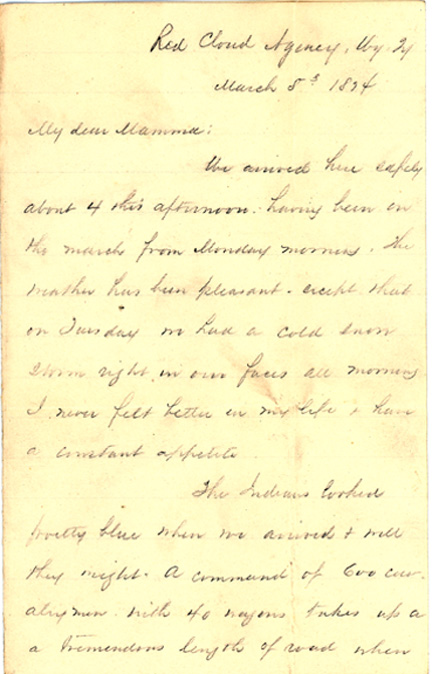 Red Cloud Agency, Wy. Ty
March 5th 1874
My dear Mamma:
We arrived here safely
about 4 this afternoon. having been on
the march from Monday morning. The
weather has been pleasant. except that
on Tuesday we had a cold snow
storm right in our faces all morning
I never felt better in my life & have
a constant appetite
The Indians looked
pretty blue when we arrived & well
they might. A command of 600 cav-
alrymen with 40 wagons takes up a
a tremendous length of road when